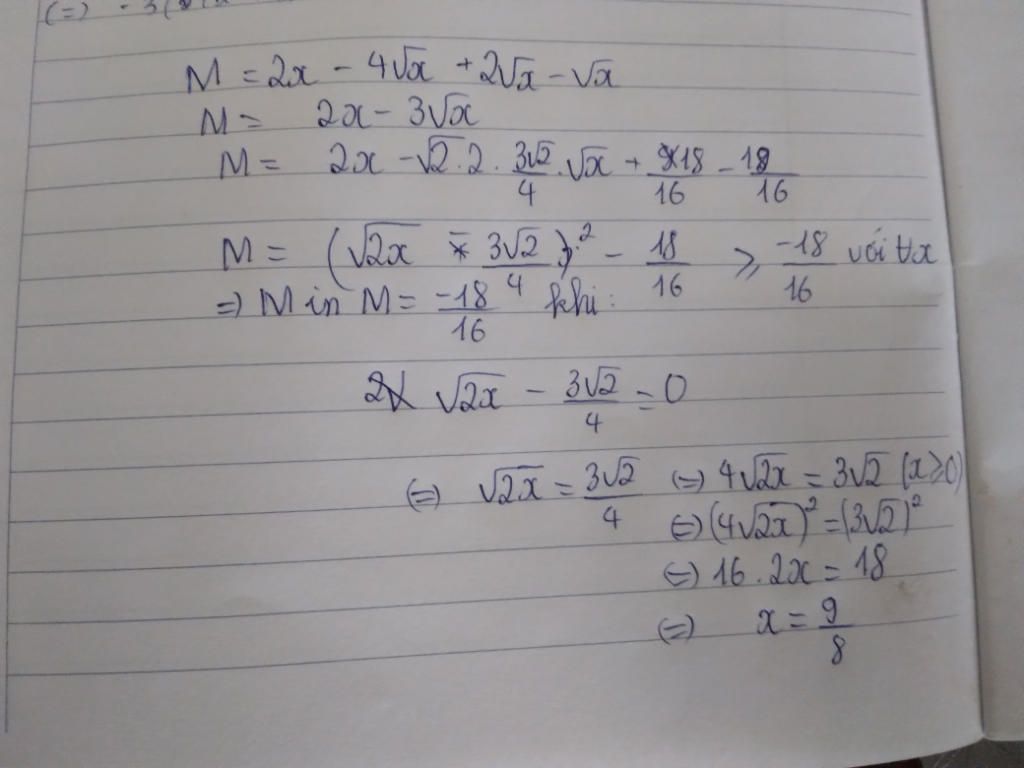 M = 2x - 4√x + 2√x - √x
M = 2x - 3√x
M = 2x - √2 . 2 . 3√2/4 . √x + 18/16 - 18/16
M = (√2x - 3√2/4)² - 18/16 ≥ -18/16 với ∀x
=) Min M = -18/16 khi:
√2x - 3√2/4 = 0
(=) √2x = 3√2/4 (=) 4√2x = 3√2 (x ≥ 0)
(=) (4√2x)² = (3√2)²
(=) 16 . 2x = 18
(=) x = 9/8